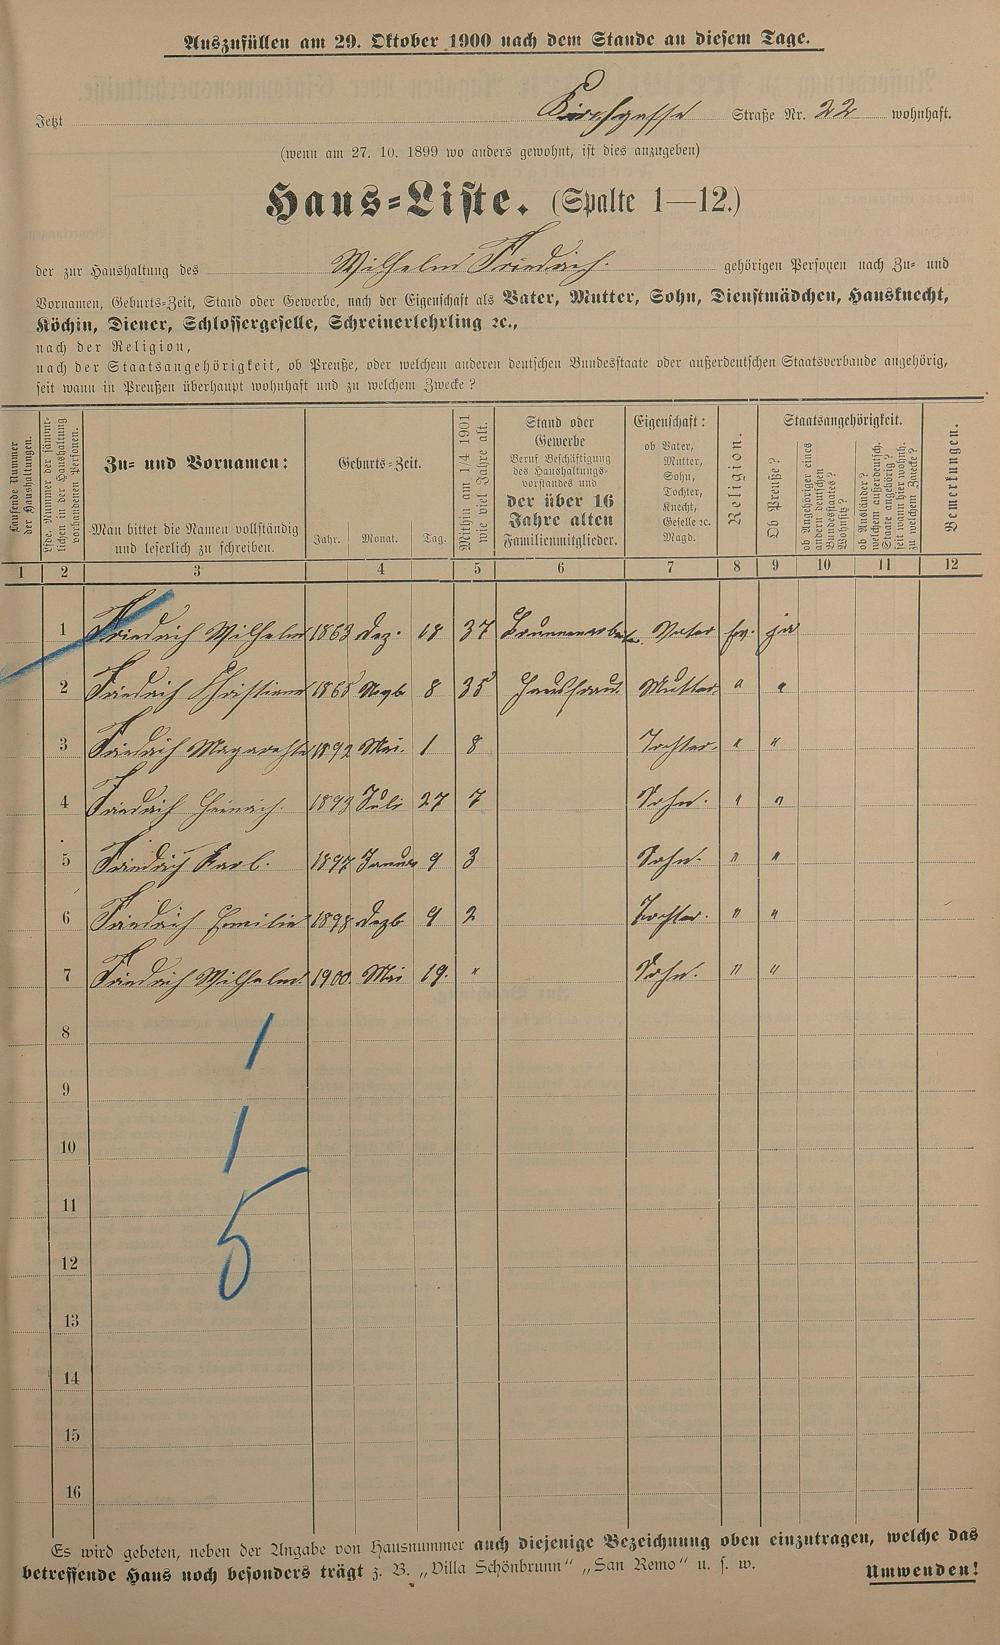 Auszufüllen am 29. Oktober 1900 nach dem Stande an diesem Tage.
Jetzt Kirchgasse Straße Nr. 22 wohnhaft.
(wenn am 27. 10. 1899 wo anders gewohnt, ist dies anzugeben)
Haus=Liste. (Spalte 1—12.)
der zur Haushaltung des Wilhelm Friedrich. gehörigen Personen nach Zu= und
Vornamen, Geburts=Zeit, Stand oder Gewerbe, nach der Eigenschaft als Vater, Mutter, Sohn, Dienstmädchen, Hausknecht,
Köchin, Diener, Schlossergeselle, Schreinerlehrling ꝛc.,
nach der Religion,
nach der Staatsangehörigkeit, ob Preuße, oder welchem anderen deutschen Bundesstaate oder außerdeutschen Staatsverbande angehörig,
seit wann in Preußen überhaupt wohnhaft und zu welchem Zwecke?
Laufende Nummer der Haushaltungen.
Lfde. Nummer der sämmtlichen in der Haushaltung vorhandenen Personen.
Zu= und Vornamen:
Man bittet die Namen vollständig
und leserlich zu schreiben.
Geburts=Zeit.
Jahr. Monat. Tag.
Mithin am 1/4 1901 wie viel Jahre alt.
Stand oder
Gewerbe
Beruf Beschäftigung
des Haushaltungs-
vorstandes und
der über 16
Jahre alten
Familienmitglieder.
Eigenschaft:
ob Vater,
Mutter,
Sohn,
Tochter,
Knecht,
Geselle ꝛc.
Magd.
Religion.
Staatsangehörigkeit.
Ob Preuße?
ob Angehöriger eines andern deutschen Bundesstaates? Wohnsitz?
ob Ausländer? welchem außerdeutsch. Staate angehörig? seit wann hier wohnh. zu welchem Zwecke?
Bemerkungen.
1 2 3 4 5 6 7 8 9 10 11 12
1 Friedrich Wilhelm 1863 Dez. 18 37 Brunnenarbeiter Vater ev. ja
2 Friedrich Christiane 1865 Novb 8 35 Hausfrau. Mutter. " "
3 Friedrich Margarethe 1892 Mai. 1 8 Tochter. " "
4 Friedrich Heinrich. 1893 Juli 27 7 Sohn. " "
5 Friedrich Karl. 1897 Januar 9 3 Sohn. " "
6 Friedrich Emilie 1898 Dezb 9 2 Tochter. " "
7 Friedrich Wilhelm. 1900. Mai 19. " Sohn. " "
8
1
9
10
1
11
12
5
13
14
15
16
Es wird gebeten, neben der Angabe von Hausnummer auch diejenige Bezeichnung oben einzutragen, welche das
betreffende Haus noch besonders trägt z. B. „Villa Schönbrunn“ „San Remo“ u. s. w. Umwenden!